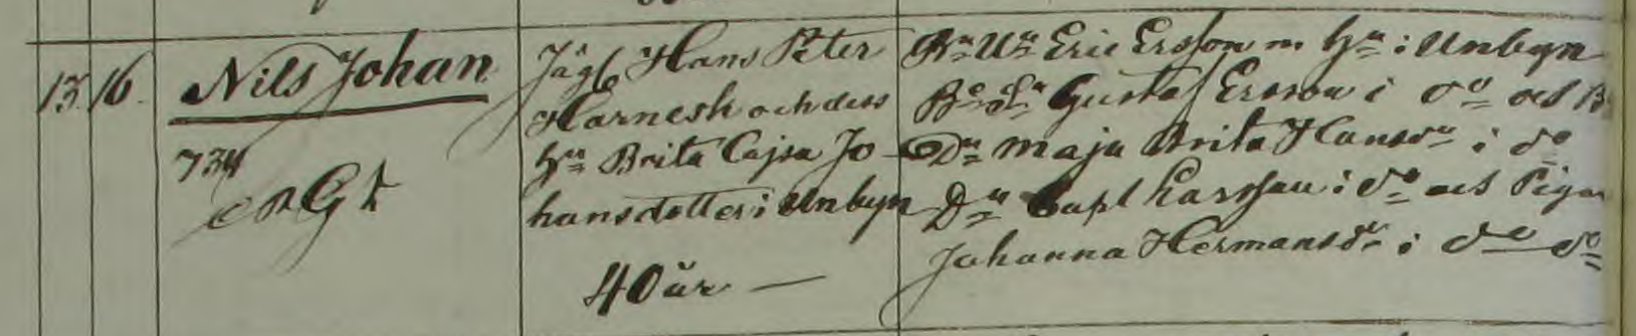 13. 16. Nils Johan
734
Jäg. Hans Peter
Harnesk och dess
Hu Brita Cajsa Jo-
hansdotter i Unbyn
40 år —
Bn Un Eric Ersson m. Hu i Unbyn
Gustaf Ersson i do och
Dn Maja Brita Hansdr i do
Dn Carl Larsson i do och Pigan
Johanna Hermansdr i do do